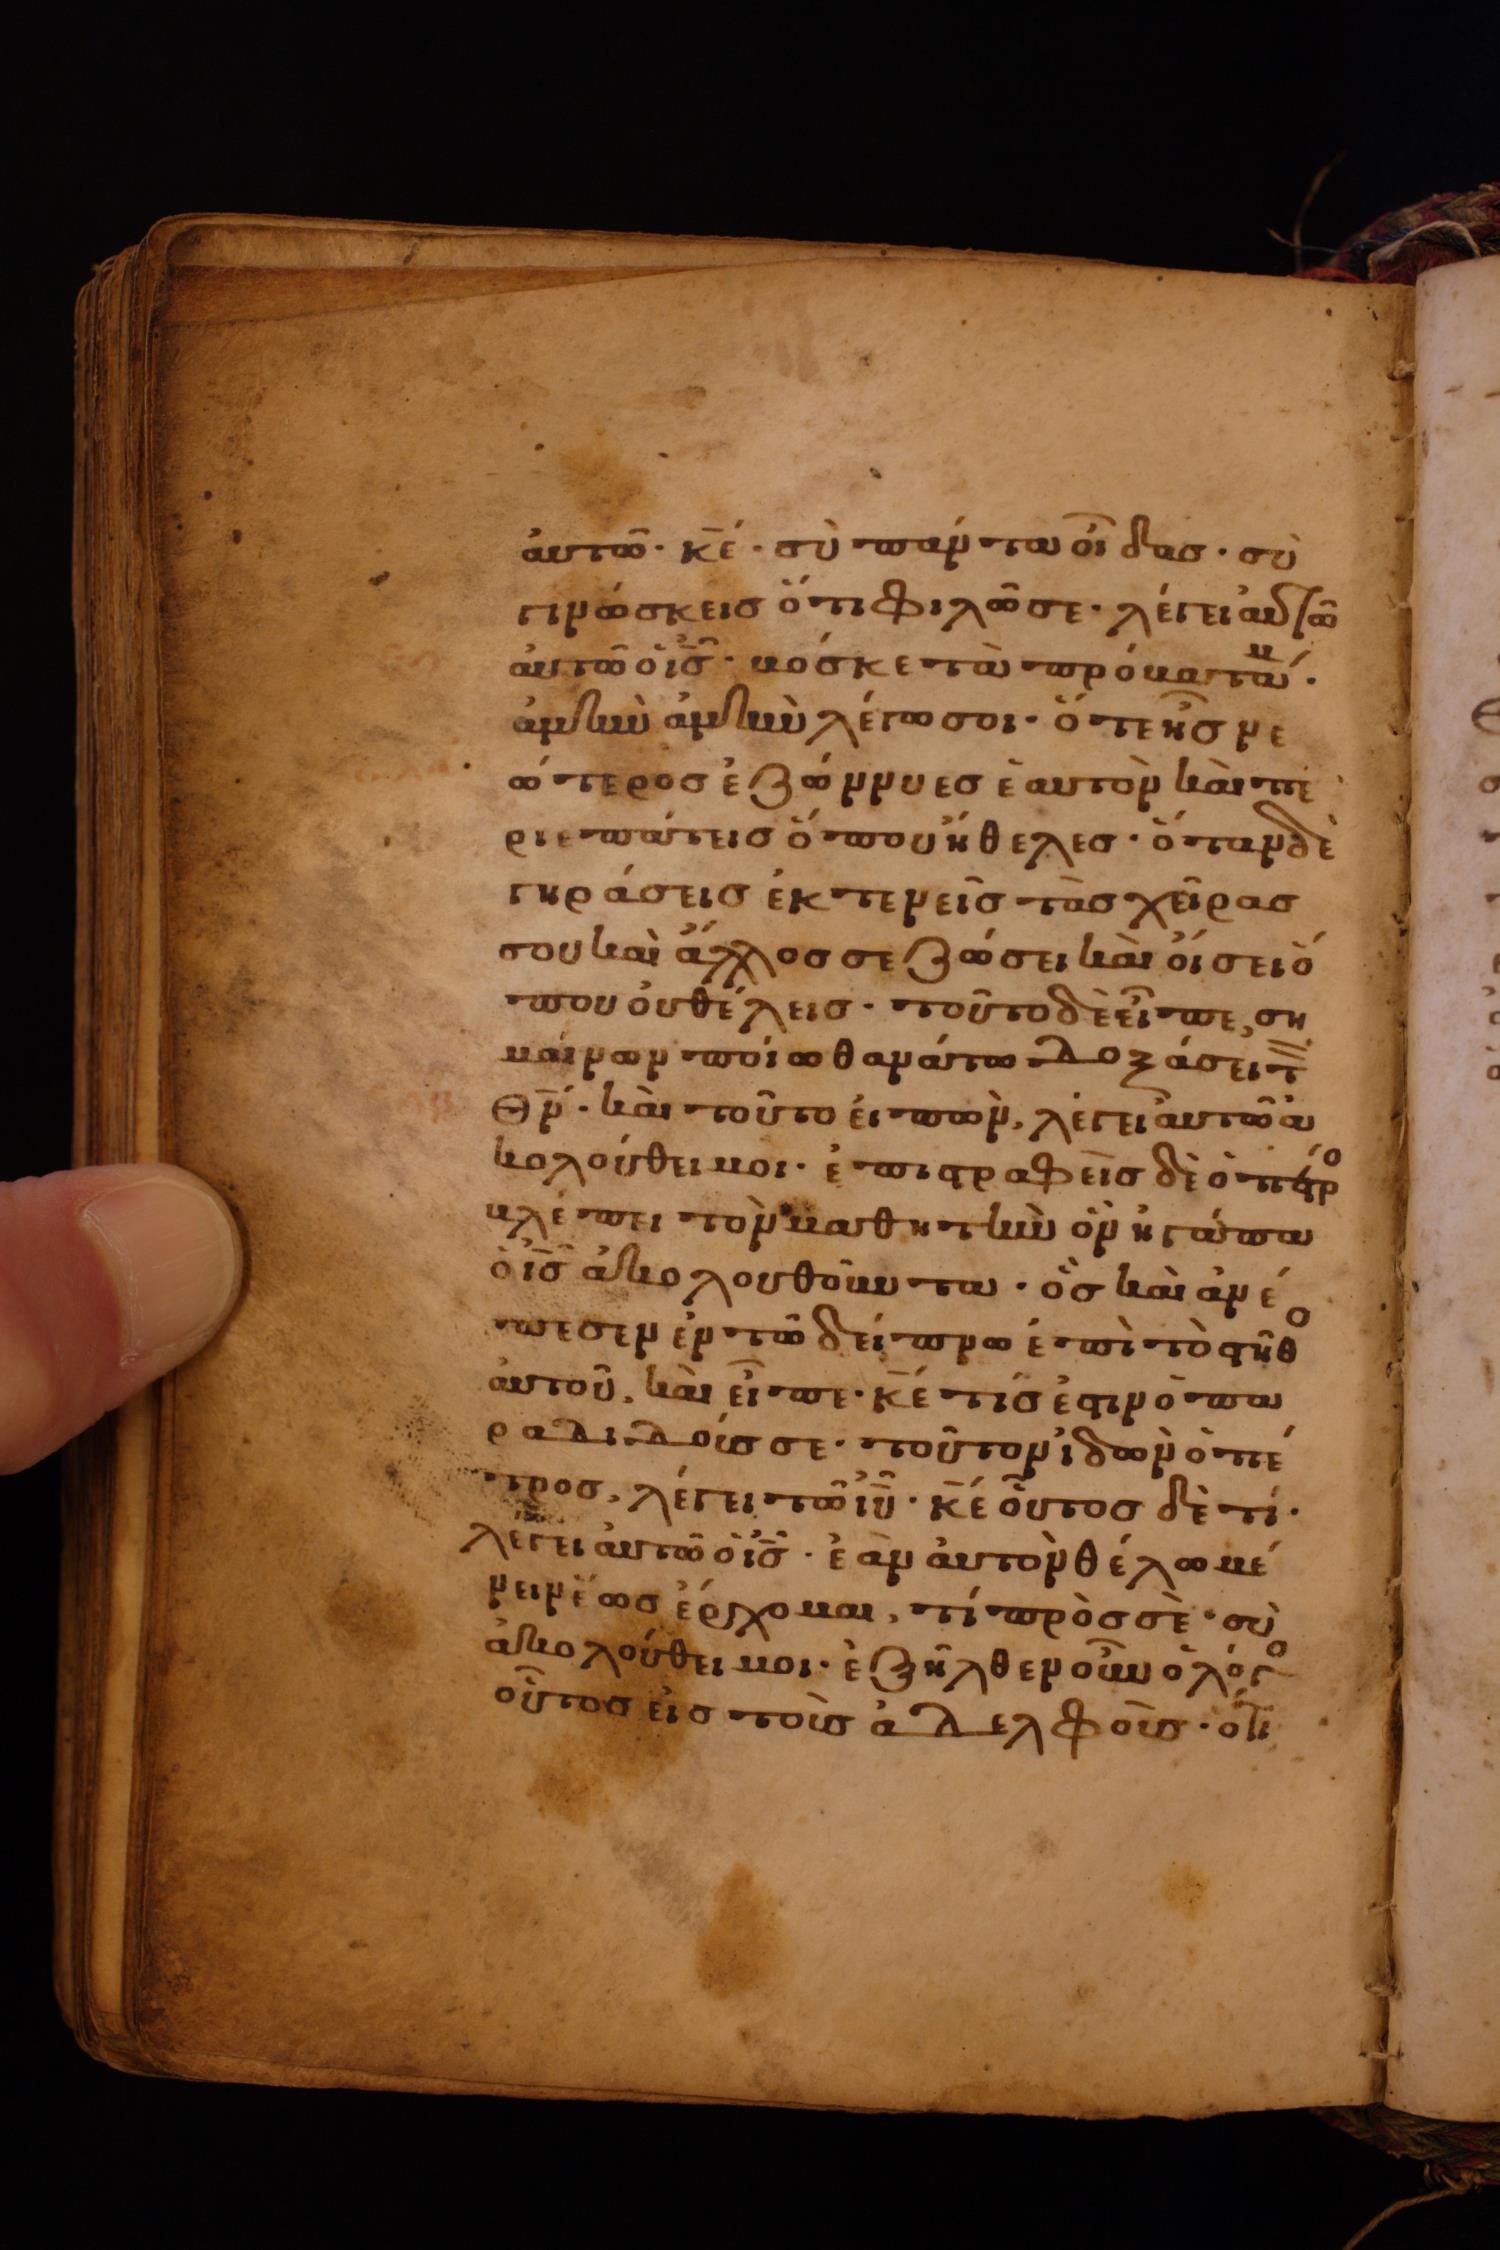 ἀυτῶ· κ̅έ· σὺ πάντα οἶδας· σὺ
γινώσκεις ὅτι φιλῶ σε· λέγει ἀυτῶ
ἀυτῶ ὁ ἰ̅ς̅· βόσκε τὰ πρόβατά μ·
ἀμὴν ἀμὴν λέγω σοι· ὅτε ἦς νε
ώτερος ἐζώννυες ἑαυτὸν καὶ πε
ριεπάτεις ὅπου ἤθελες· ὅταν δὲ
γηράσεις ἐκτενεῖς τὰς χεῖρας
σου καὶ ἄλλος σε ζώσει καὶ οἴσει ὅ
που ὀυ θέλεις· τοῦτο δὲ εἶπε, ση
μαίνων ποίω θανάτω δοξάσει τ
θ̅ν̅· καὶ τοῦτο ἐιπὼν, λέγει ἀυτῶ ἀ
κολούθει μοι· ἐπιστραφεὶς δὲ ὁ πέτρο
βλέπει τὸν μαθητὴν ὃν ἠγάπα
ὁ ἰ̅ς̅ ἀκολουθοῦντα· ὃς καὶ ἀνέ
πεσεν ἐν τῶ δείπνω ἐπὶ τὸ στῆθο
ἀυτοῦ, καὶ εἶπε· κ̅έ τίς ἐστιν ὁ πα
ραδιδούς σε· τοῦτον ἰδὼν ὁ πέ
τρος, λέγει τῶ ἰ̅υ̅· κ̅έ οὗτος δὲ τί·
λέγει ἀυτῶ ὁ ἰ̅ς̅· ἐὰν ἀυτὸν θέλω μέ
νειν ἕως ἔρχομαι, τί πρὸς σὲ· σὺ
ἀκολούθει μοι· ἐξῆλθεν οὖν ὁ λόγο
οὗτος εἰς τοὺς ἀδελφοὺς· ὅτι